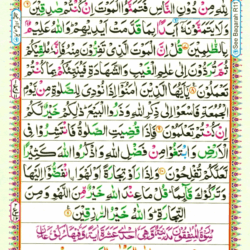 لِلّٰهِ مِنْ دُوْنِ النَّاسِ فَتَمَنَّوُا الْمَوْتَ اِنْ كُنْتُمْ صٰدِقِيْنَ
وَلَا يَتَمَنَّوْنَهٗۤ اَبَدًۢا بِمَا قَدَّمَتْ اَيْدِيْهِمْ ؕ وَاللّٰهُ عَلِيْمٌۢ
بِالظّٰلِمِيْنَ قُلْ اِنَّ الْمَوْتَ الَّذِيْ تَفِرُّوْنَ مِنْهُ فَاِنَّهٗ مُلٰقِيْكُمْ
ثُمَّ تُرَدُّوْنَ اِلٰى عٰلِمِ الْغَيْبِ وَالشَّهَادَةِ فَيُنَبِّئُكُمْ بِمَا كُنْتُمْ
تَعْمَلُوْنَ يٰۤاَيُّهَا الَّذِيْنَ اٰمَنُوْۤا اِذَا نُوْدِيَ لِلصَّلٰوةِ مِنْ يَّوْمِ
الْجُمُعَةِ فَاسْعَوْا اِلٰى ذِكْرِ اللّٰهِ وَذَرُوا الْبَيْعَ ؕ ذٰلِكُمْ خَيْرٌ لَّكُمْ
اِنْ كُنْتُمْ تَعْلَمُوْنَ فَاِذَا قُضِيَتِ الصَّلٰوةُ فَانْتَشِرُوْا فِى
الْاَرْضِ وَابْتَغُوْا مِنْ فَضْلِ اللّٰهِ وَاذْكُرُوا اللّٰهَ كَثِيْرًا
لَّعَلَّكُمْ تُفْلِحُوْنَ وَاِذَا رَاَوْا تِجَارَةً اَوْ لَهْوَا ۨانْفَضُّوْۤا اِلَيْهَا
وَتَرَكُوْكَ قَآئِمًا ؕ قُلْ مَا عِنْدَ اللّٰهِ خَيْرٌ مِّنَ اللَّهْوِ وَمِنَ
التِّجَارَةِ ؕ وَاللّٰهُ خَيْرُ الرّٰزِقِيْنَ
See Baqarah R11